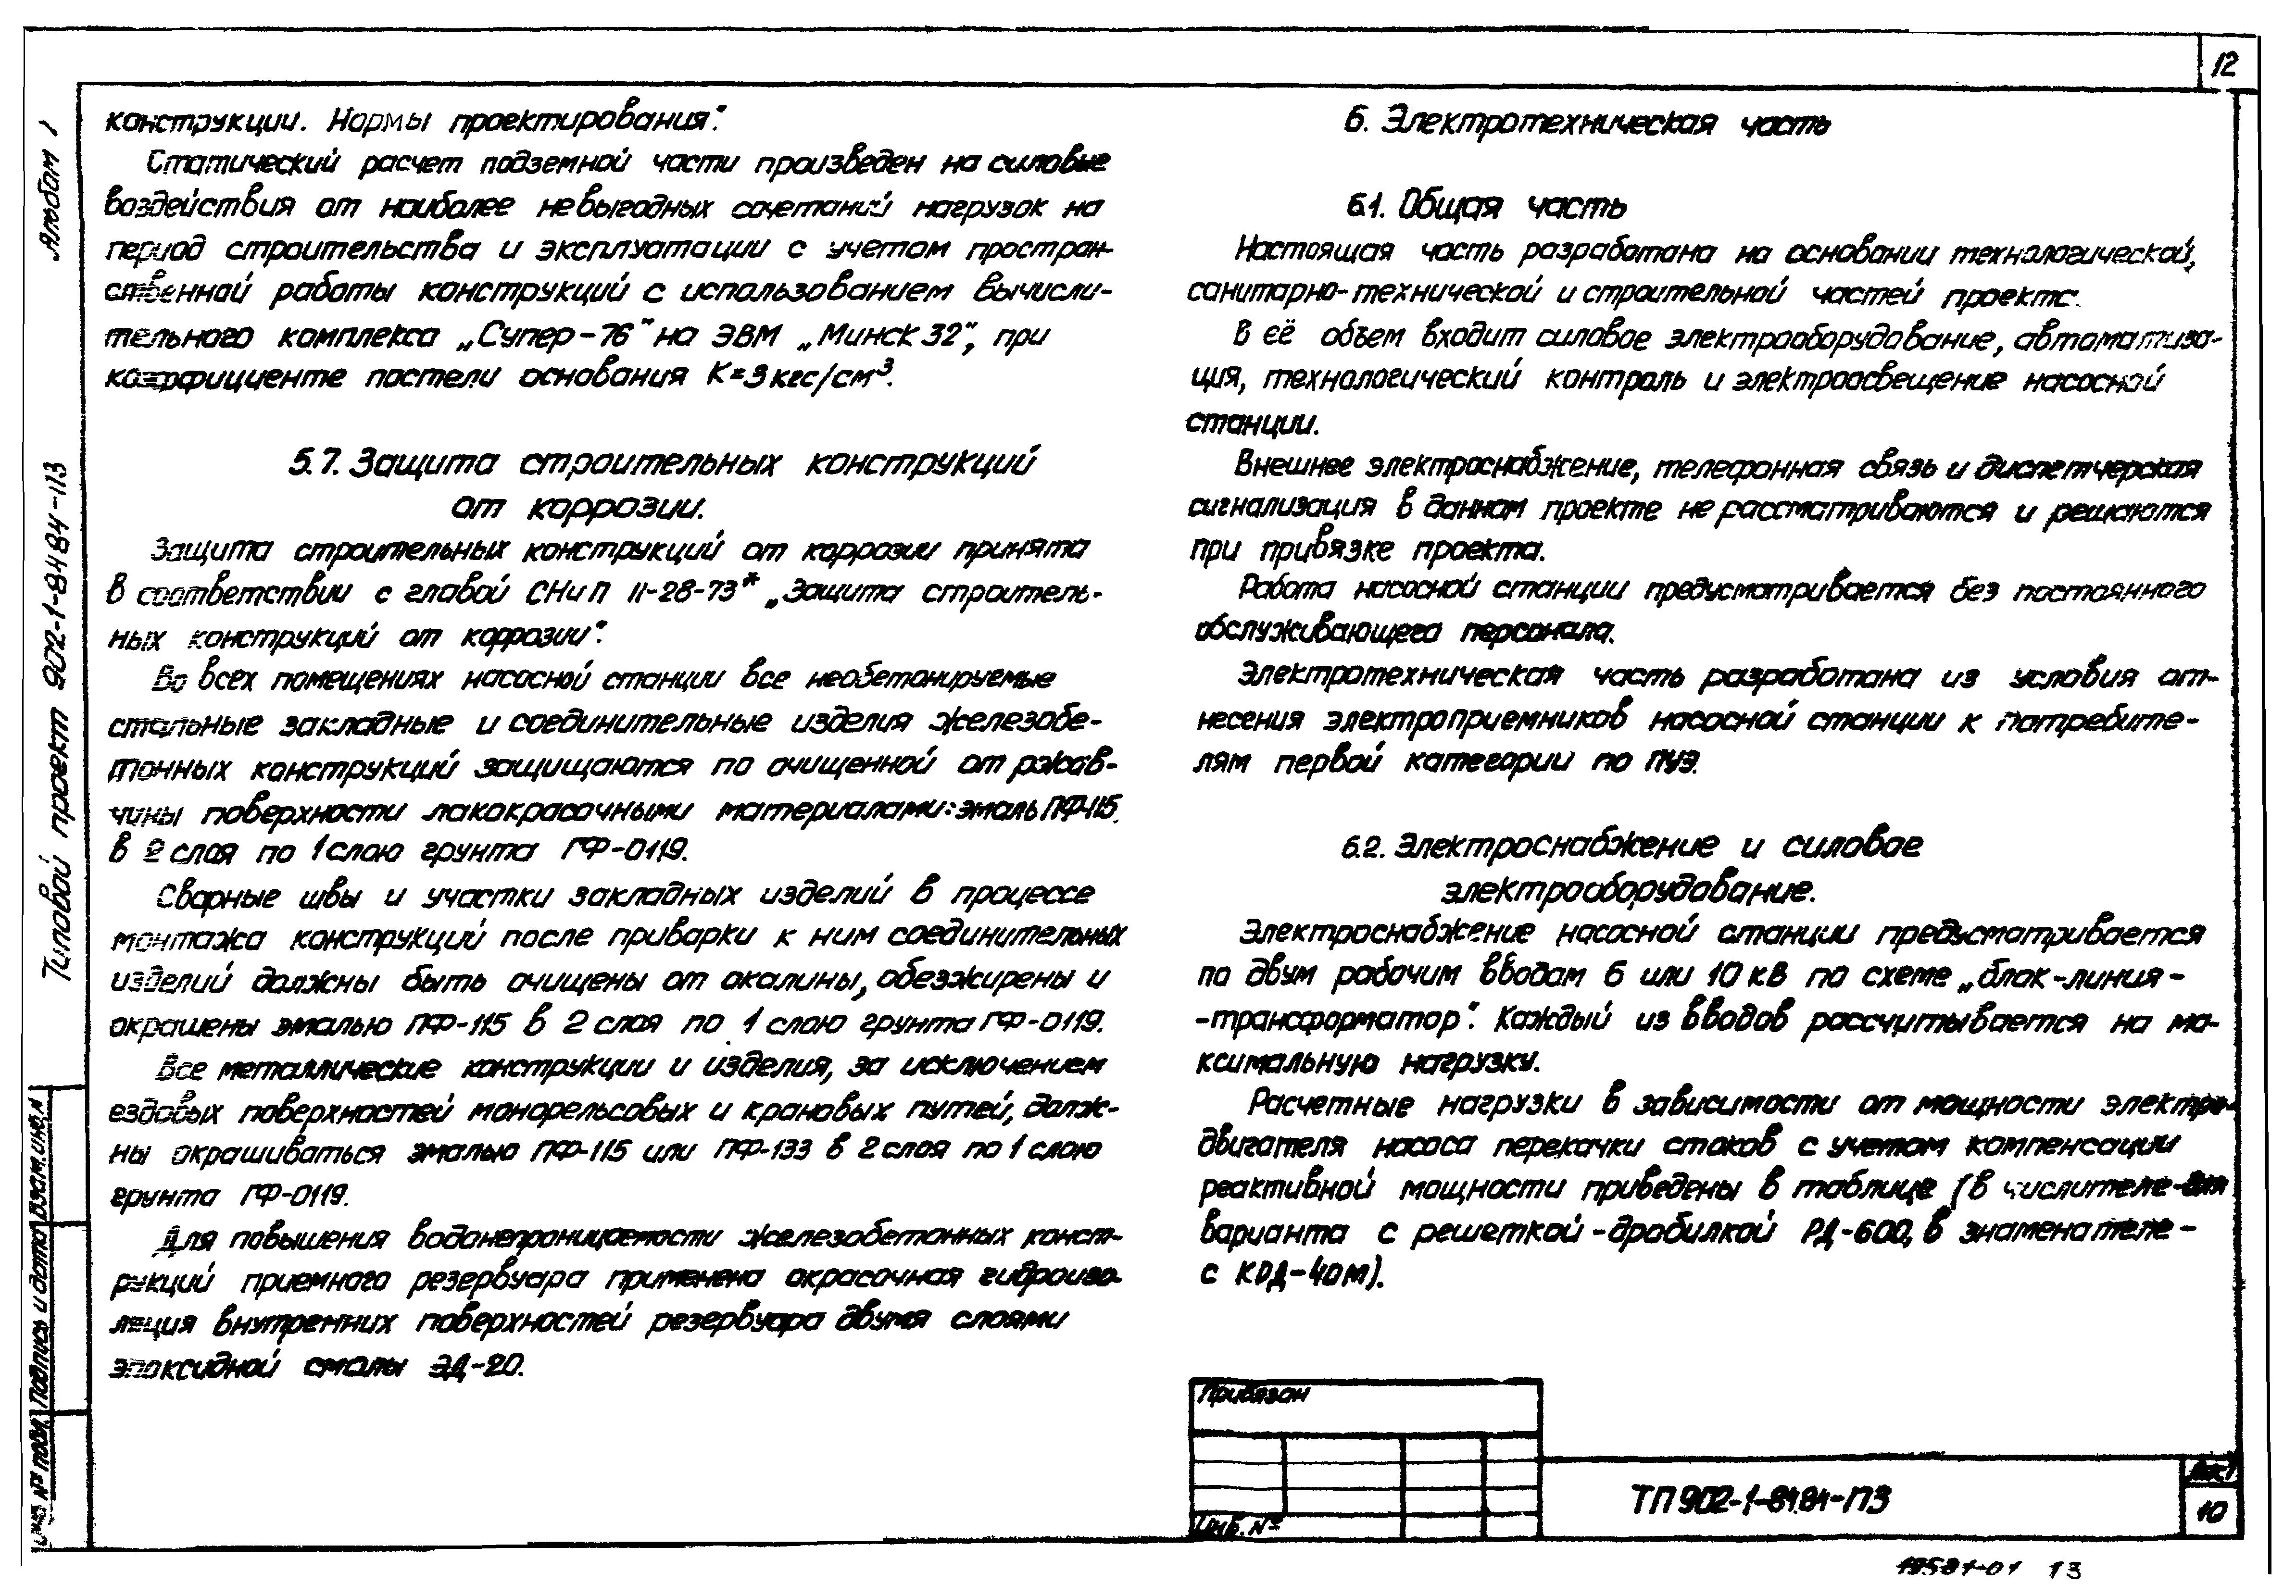 12
Альбом 1
Типовой проект 902-1-84.84-П3
конструкции. Нормы проектирования".
Статический расчет подземной части произведен на силовые
воздействия от наиболее невыгодных сочетаний нагрузок на
период строительства и эксплуатации с учетом простран-
ственной работы конструкций с использованием вычисли-
тельного комплекса „Супер-76" на ЭВМ „Минск 32", при
коэффициенте постели основания К=3кгс/см³.
5.7. Защита строительных конструкций
от коррозии.
Защита строительных конструкций от коррозии принята
в соответствии с главой СНиП II-28-73* „Защита строитель-
ных конструкций от коррозии".
Во всех помещениях насосной станции все необетонируемые
стальные закладные и соединительные изделия железобе-
тонных конструкций защищаются по очищенной от ржав-
чины поверхности лакокрасочными материалами: эмаль ПФ-115
в 2 слоя по 1 слою грунта ГФ-0119.
Сварные швы и участки закладных изделий в процессе
монтажа конструкций после приварки к ним соединительных
изделий должны быть очищены от окалины, обезжирены и
окрашены эмалью ПФ-115 в 2 слоя по 1 слою грунта ГФ-0119.
Все металлические конструкции и изделия, за исключением
ездовых поверхностей монорельсовых и крановых путей, долж-
ны окрашиваться эмалью ПФ-115 или ПФ-133 в 2 слоя по 1 слою
грунта ГФ-0119.
Для повышения водонепроницаемости железобетонных конст-
рукций приемного резервуара применена окрасочная гидроизо-
ляция внутренних поверхностей резервуара двумя слоями
эпоксидной смолы ЭД-20.
6. Электротехническая часть
6.1. Общая часть
Настоящая часть разработана на основании технологической,
санитарно-технической и строительной частей проекта.
В её объем входит силовое электрооборудование, автоматиза-
ция, технологический контроль и электроосвещение насосной
станции.
Внешнее электроснабжение, телефонная связь и диспетчерская
сигнализация в данном проекте не рассматриваются и решаются
при привязке проекта.
Работа насосной станции предусматривается без постоянного
обслуживающего персонала.
Электротехническая часть разработана из условия от-
несения электроприемников насосной станции к потребите-
лям первой категории по ПУЭ.
6.2. Электроснабжение и силовое
электрооборудование.
Электроснабжение насосной станции предусматривается
по двум рабочим вводам 6 или 10 кВ по схеме „блок-линия-
-трансформатор". Каждый из вводов рассчитывается на ма-
ксимальную нагрузку.
Расчетные нагрузки в зависимости от мощности электро-
двигателя насоса перекачки стоков с учетом компенсации
реактивной мощности приведены в таблице (в числителе-для
варианта с решеткой-дробилкой РД-600, в знаменателе-
с КРД-40М).
Привязан
Инв. №
ТП 902-1-84.84-ПЗ
Лист
10
Инв. № подл. Подпись и дата Взам. инв. №
19581-01 13